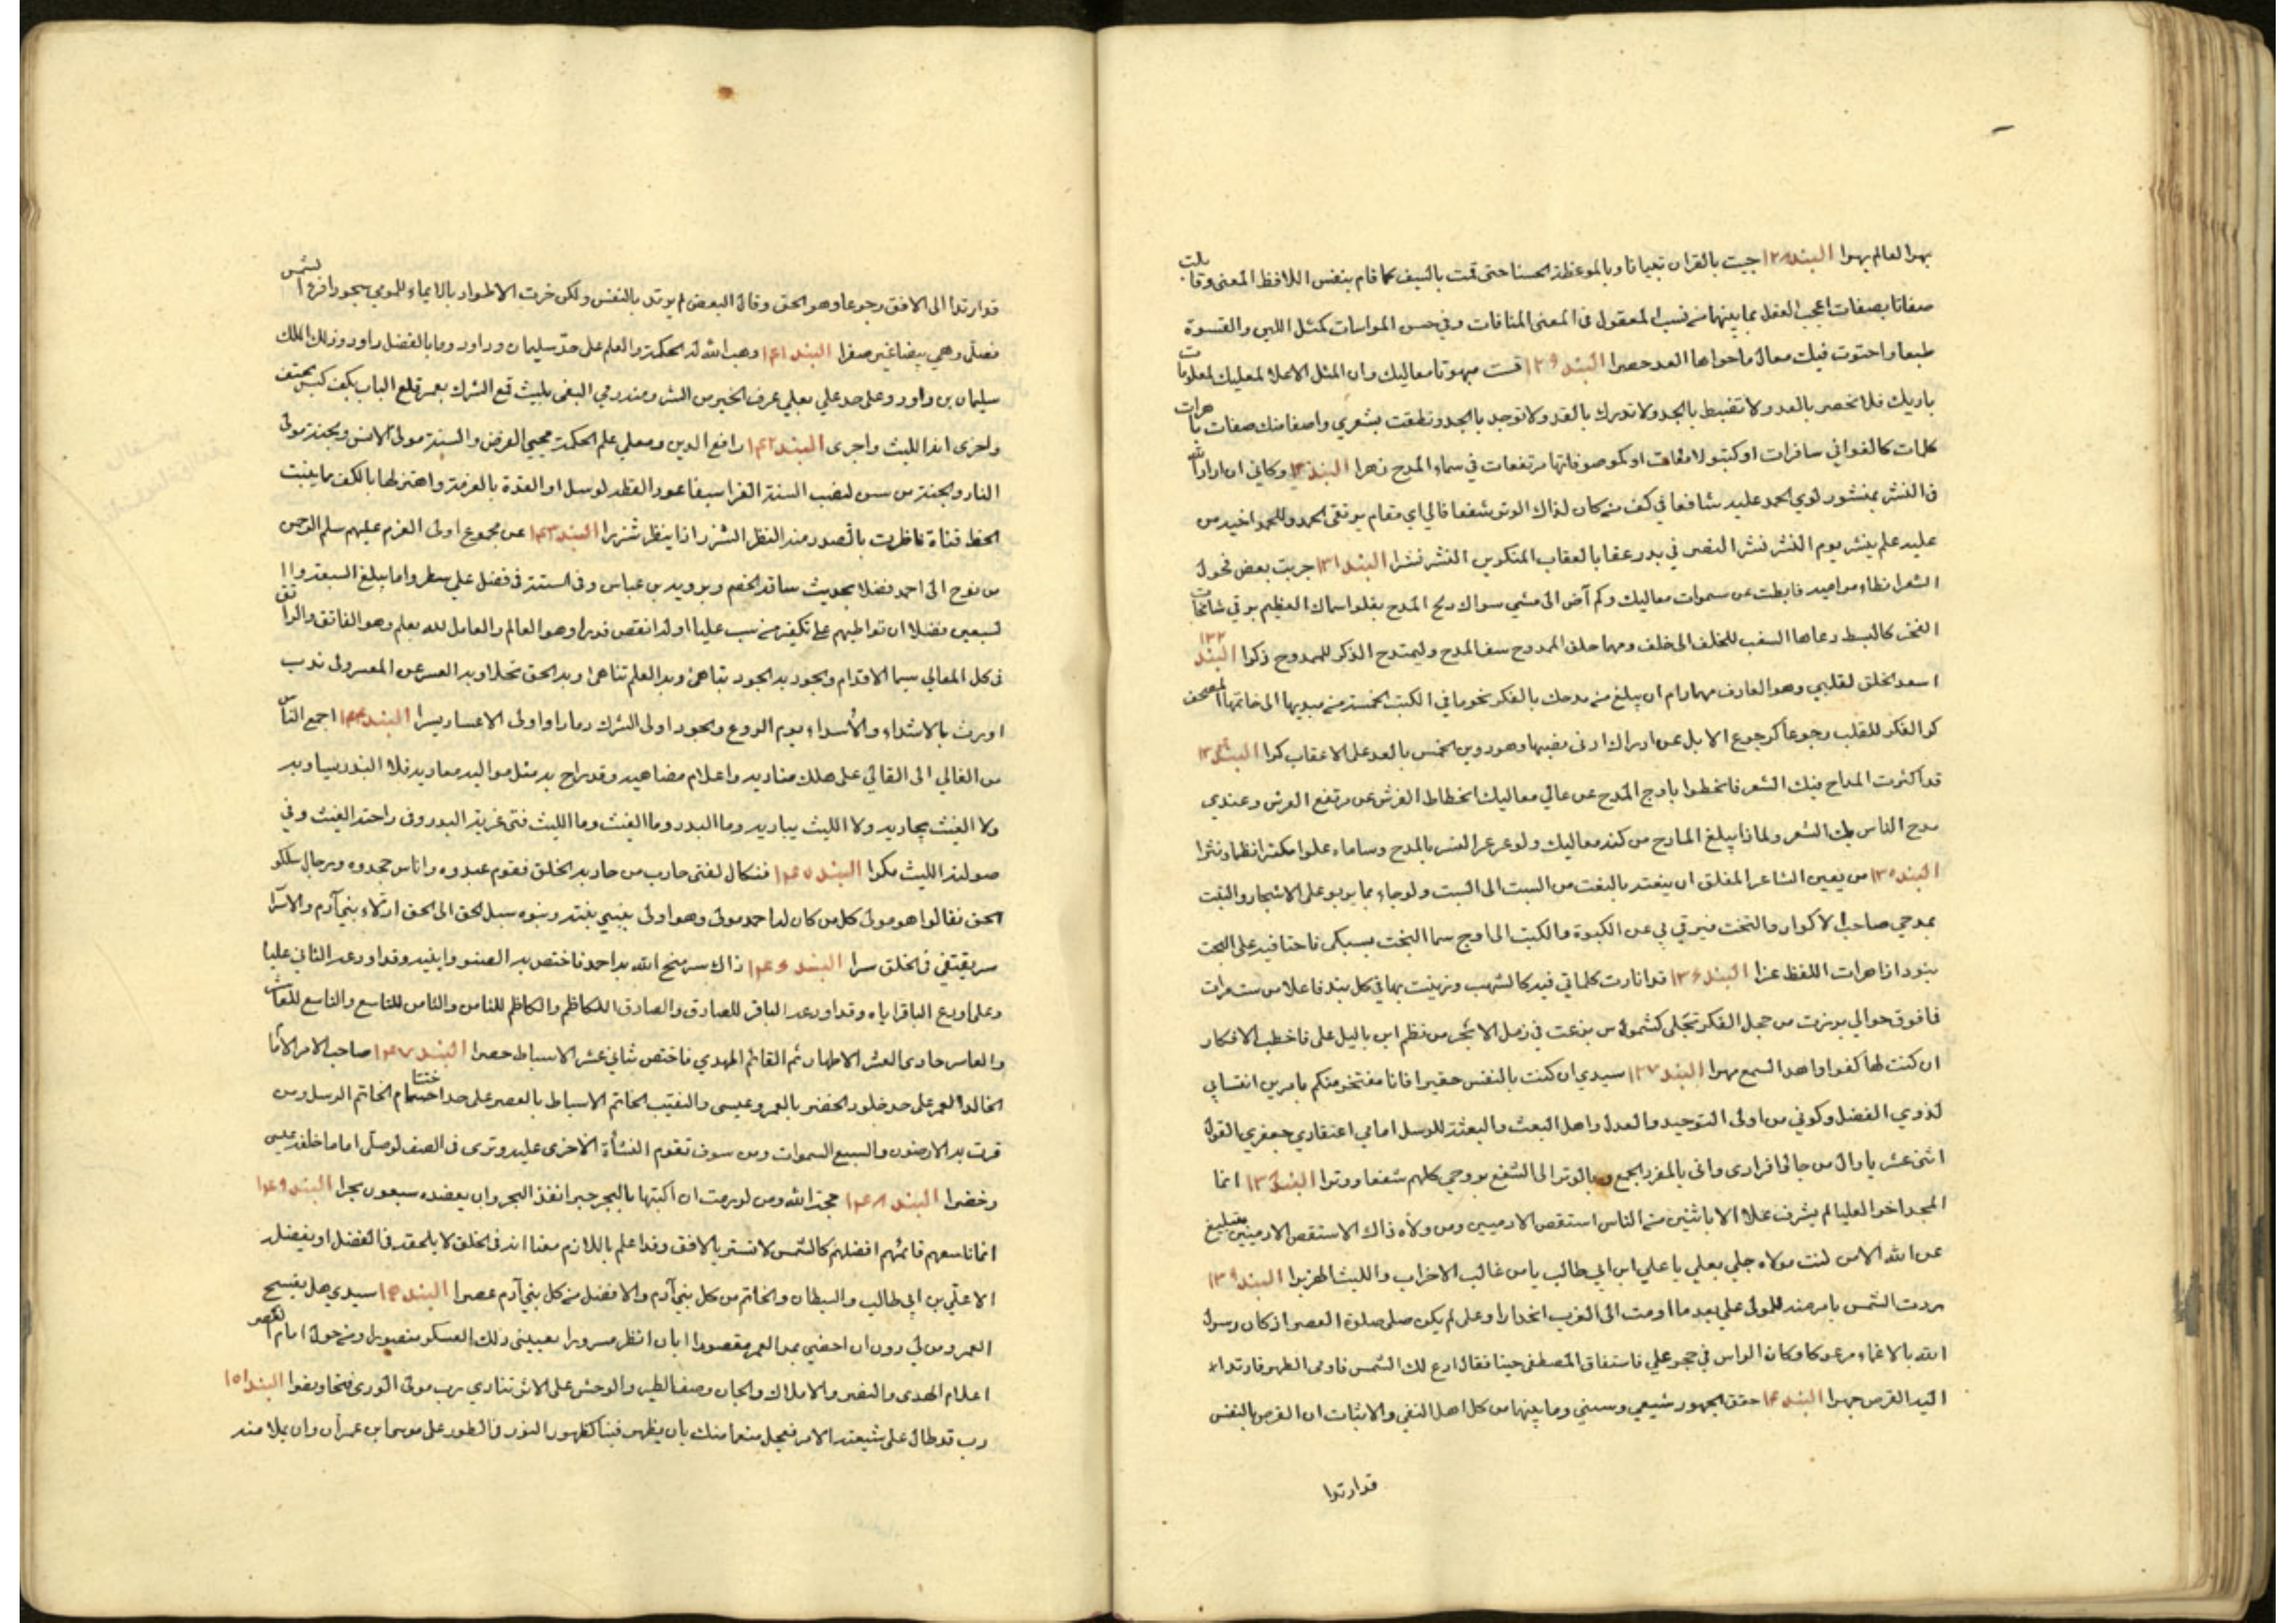 بهر العالم بهرا البند ١٢٨ جيت بالقران تبيانا وبالموعظة الحسنا حتى قمت بالسيف كما قام بنفس اللافظ المعنى وقابلت
صفاتا بصفات اعجب العقل بما بينها من نسب المعقول في المعنى المنافات وفي حسن المواسات كمثل اللين والقسوة
طبعا واحتوت فيك معال ما حواها العد حصرا البند ١٢٩ قست مبهوتا معاليك وان المثل الاعلا لمعليك لمعلومات
باريك فلا تحصر بالعد ولا تضبط بالحد ولا تدرك بالقد ولا توجد بالجد ونطقت بشعري واصفا منك صفات باهرات
كلمات كالغواني سافرات او كبتولا مقات او كموصوفاتها مرتفعات في سماء المدح زهرا البند ١٣٠ وكاني ان اراد الله
في النشر بمنشور لوي الحمد عليه شافعا في كف من كان لذاك الوتر شفعا قال اي مقام يرتقى الحمد وللحمد اخير من
عليه علم ينشر يوم النشر نشر النصر في بدر عقابا لعقاب المنكرين النشر نشرا البند ١٣١ جربت بعض فحول
الشعرا نظاء مواميه فابطت عن سموات معاليك وكم آض الى مشي سواك ريح المدح يغلو اسماك العظيم يرقي شامخات
الفخر كالبسط دعاها السغب للخلف الى خلف ومهما حلق الممدوح سف المدح وليمتدح الذكر للممدوح ذكرا البند ١٣٢
اسعد الخلق لقلبي وهو العارف مهما رام ان يبلغ من مدحك بالفكر نحو ما في الكتب الخمسة من مبديها الى خاتمها المصحف
كر الفكر للقلب رجوعا كرجوع الابل عن ادراك ادنى مضيها وهو دون الخمس بالعد على الاعقاب كرا البند ١٣٤
قد اكثرت المداح فيك الشعر فانحطوا باوج المدح عن عالي معاليك انحطاط الفرش عن مرتفع العرش وعندي
مدح الناس بك الشعر ولماذا يبلغ المادح من كنه معاليك ولو عرعر النسر بالمدح وساماء علوا مكفرا نظما ونثرا
البند ١٣٥ من يعين الشاعر المفلق ان ينعته بالنعت من السبت الى السبت ولو جاء بما يربو على الاشجار والنبت
بمدحي صاحب الاكوار والتخت فيرقي بي عن الكبوة والكبت الى اوج سما البخت بسبكي فاختا فيه على البحت
بنود ازاهرات اللفظ عزا البند ١٣٦ قد انارت كلماتي فيه كالشهب وزينت بها في كل بند فاعلا من شعرات
فافوق حوالي برزت من حجل الفكر تجلى كشموس بزعت في زمل الابحر من نظم ابن باليل على فاخطب الافكار
ان كنت لها كفوا واهد السمع مهرا البند ١٣٧ سيدي ان كنت بالنفس حقيرا فانا مفتخر منكم بامرين انتسابي
لذوي الفضل وكوني من اولى التوحيد والعدل واهل البعث والبعثة للرسل امامي اعتقادي جعفري القول
اثنى عشر يا وال من جا فرادى واتى بالمفرد الجمع وبالوتر الى الشفع بروحي كلهم شفعا ووترا البند ١٣٨ انما
المجد اخو العليا لم يشرف علا الا باثنين من الناس استقص الادميين ومن ولاه ذاك الاستقص الادميين بتبليغ
عن الله الامن لنت مولاه جلي بعلي يا علي ابن ابي طالب يا من غالب الاحزاب والليث الهزبرا البند ١٣٩
ردت الشمس بامر منه للمولى علي بعد ما اومت الى الغرب انحدارا وعلى لم يكن صلى صلوة العصر اذ كان رسول
الله بالاغماء مرعوكا وكان الراس في حجر علي فاستفاق المصطفى حينا فقال ادع لك الشمس فاومى الطهر فارتد له
اليه القرص جهرا البند ١٤٠ حقق الجمهور شيعي وسني وما بينها من كل اهل النفي والاثبات ان القرص بالنفس
قد ارتدا
قد ارتدا الى الافق رجوعا وهو الحق وقال البعض لم يرتد بالنفس ولكن خرت الاطواد بالايماء للومي سجودا فرع الشمس
فصلى وهي بيضا غير صفرا البند ١٤١ وهب الله له الحكمة والعلم على حد سليمان وداود وما بالفضل داود وذلك الملك
سليمان بن داود وعلى حد علي بعلي عرف الخير من الشر ومنه رمي البغى بليث قمع الشرك بعمر قلع الباب بكف كبس بحتف
واخرى انف الليث واجرى البند ١٤٢ رافع الدين ومعلي علم الحكمة محيي الفرض والسنة مولى الانس والجنة مولى
النار والجنة من سن لنصب السنة الغرا سيفا عود القطر لو سل او القدة بالعزمة واهتز لها بالكف ما ينبت
الخط قناة ناظرت بالصدر منه النظر الشزر اذا ينظر شزرا البند ١٤٣ عن مجموع اولى العزم عليهم سلم الرحمن
من نوح الى احمد فضلا بحديث ساقه الخصم ويرويه بن عباس وفى الستة في فضل علي سطروا ما يبلغ السبعة والا
تسبعين فضلا ان تواطيهم على تكفير من سب عليا او له انقص قدرا وهو العالم والعامل لله بعلم وهو الفاتق والراتق
في كل المعالي سيما الاقدام والجود به الجود تباهى وبه العلم تناهى وبه الحق تحلا وبه العسر عن المعسر ولى ندب
اورث بالاشداء والأسداء يوم الروع والجود اولى الشرك دمارا واولى الاعسار يسرا البند ١٤٤ اجمع الناس
من الغالي الى القالي على هلك مناديه واعلام مضاهيه وقد راح به مثل مواليه معاديه فلا البدر يساويه
ولا الغيث يجاريه ولا الليث يباريه وما البدر وما الغيث وما الليث فتى غزيته البدر وفى راحته الغيث وفي
صولته الليث مكرا البند ١٤٥ فتكال لفتى حارب من حاد به الخلق فقوم عبدوه واناس جحدوه ورجال سلكو
الحق فقالوا هو مولى كل من كان له احمد مولى وهو اولى بنبيي بنته وبنوه سبل الحق الى الحق ادلاء بني آدم والاسرا
سر يقتفي في الخلق سرا البند ١٤٦ ذاك سر منح الله به احمد فاختص به الصنو وابنيه وقد اودعه الثاني عليا
وعلى اودع الباقر اياه وقد اودعه الباقر للصادق والصادق الكاظم والكاظم للثامن والثامن للتاسع والتاسع للعاشر
والعاشر حادى العشر الاطهار ثم القائم المهدي فاختص ثاني عشر الاسباط حصرا البند ١٤٧ صاحب الامر الامام
الخالد العمر على حد خلود الخضر بالعمر وعيسى والنقيب الخاتم الاسباط بالعصر على حد اختتام الخاتم الرسل ومن
قرت به الارضون والسبع السموات ومن سوف تقوم النشأة الاخرى عليه وترى في الصف لو صلى اماما خلفه عيسى
وخضرا البند ١٤٨ حجة الله ومن لو رمت ان اكتبها بالبحر حبرا انفذ البحر وان يعضده سبعون بحرا البند ١٤٩
انما تاسعهم قائمهم افضلهم كالشمس لا تستر بالافق وقد اعلم باللازم معنا انه في الخلق لا يلحقه في الفضل او يفضله
الا علي بن ابي طالب والسبطان والخاتم من كل بني آدم والافضل من كل بني آدم عصرا البند ١٥٠ سيدي هل يفسح
العمر ومن لي دون ان احضي بمد العمر مقصورا ابا ان انظر مسرورا بعيني ذلك العسكر منصوبل ومن حول امام العصر
اعلام الهدى والنصر والاملاك والجان وصف الطير والوحش على الاثر تنادي برب مولى الورى فتحا ونصرا البند ١٥١
رب قد طال على شيعته الامر فعجل منعما منك بان يظهر فينا كظهور النور في الطور على موسى ابن عمران وان يملا منه